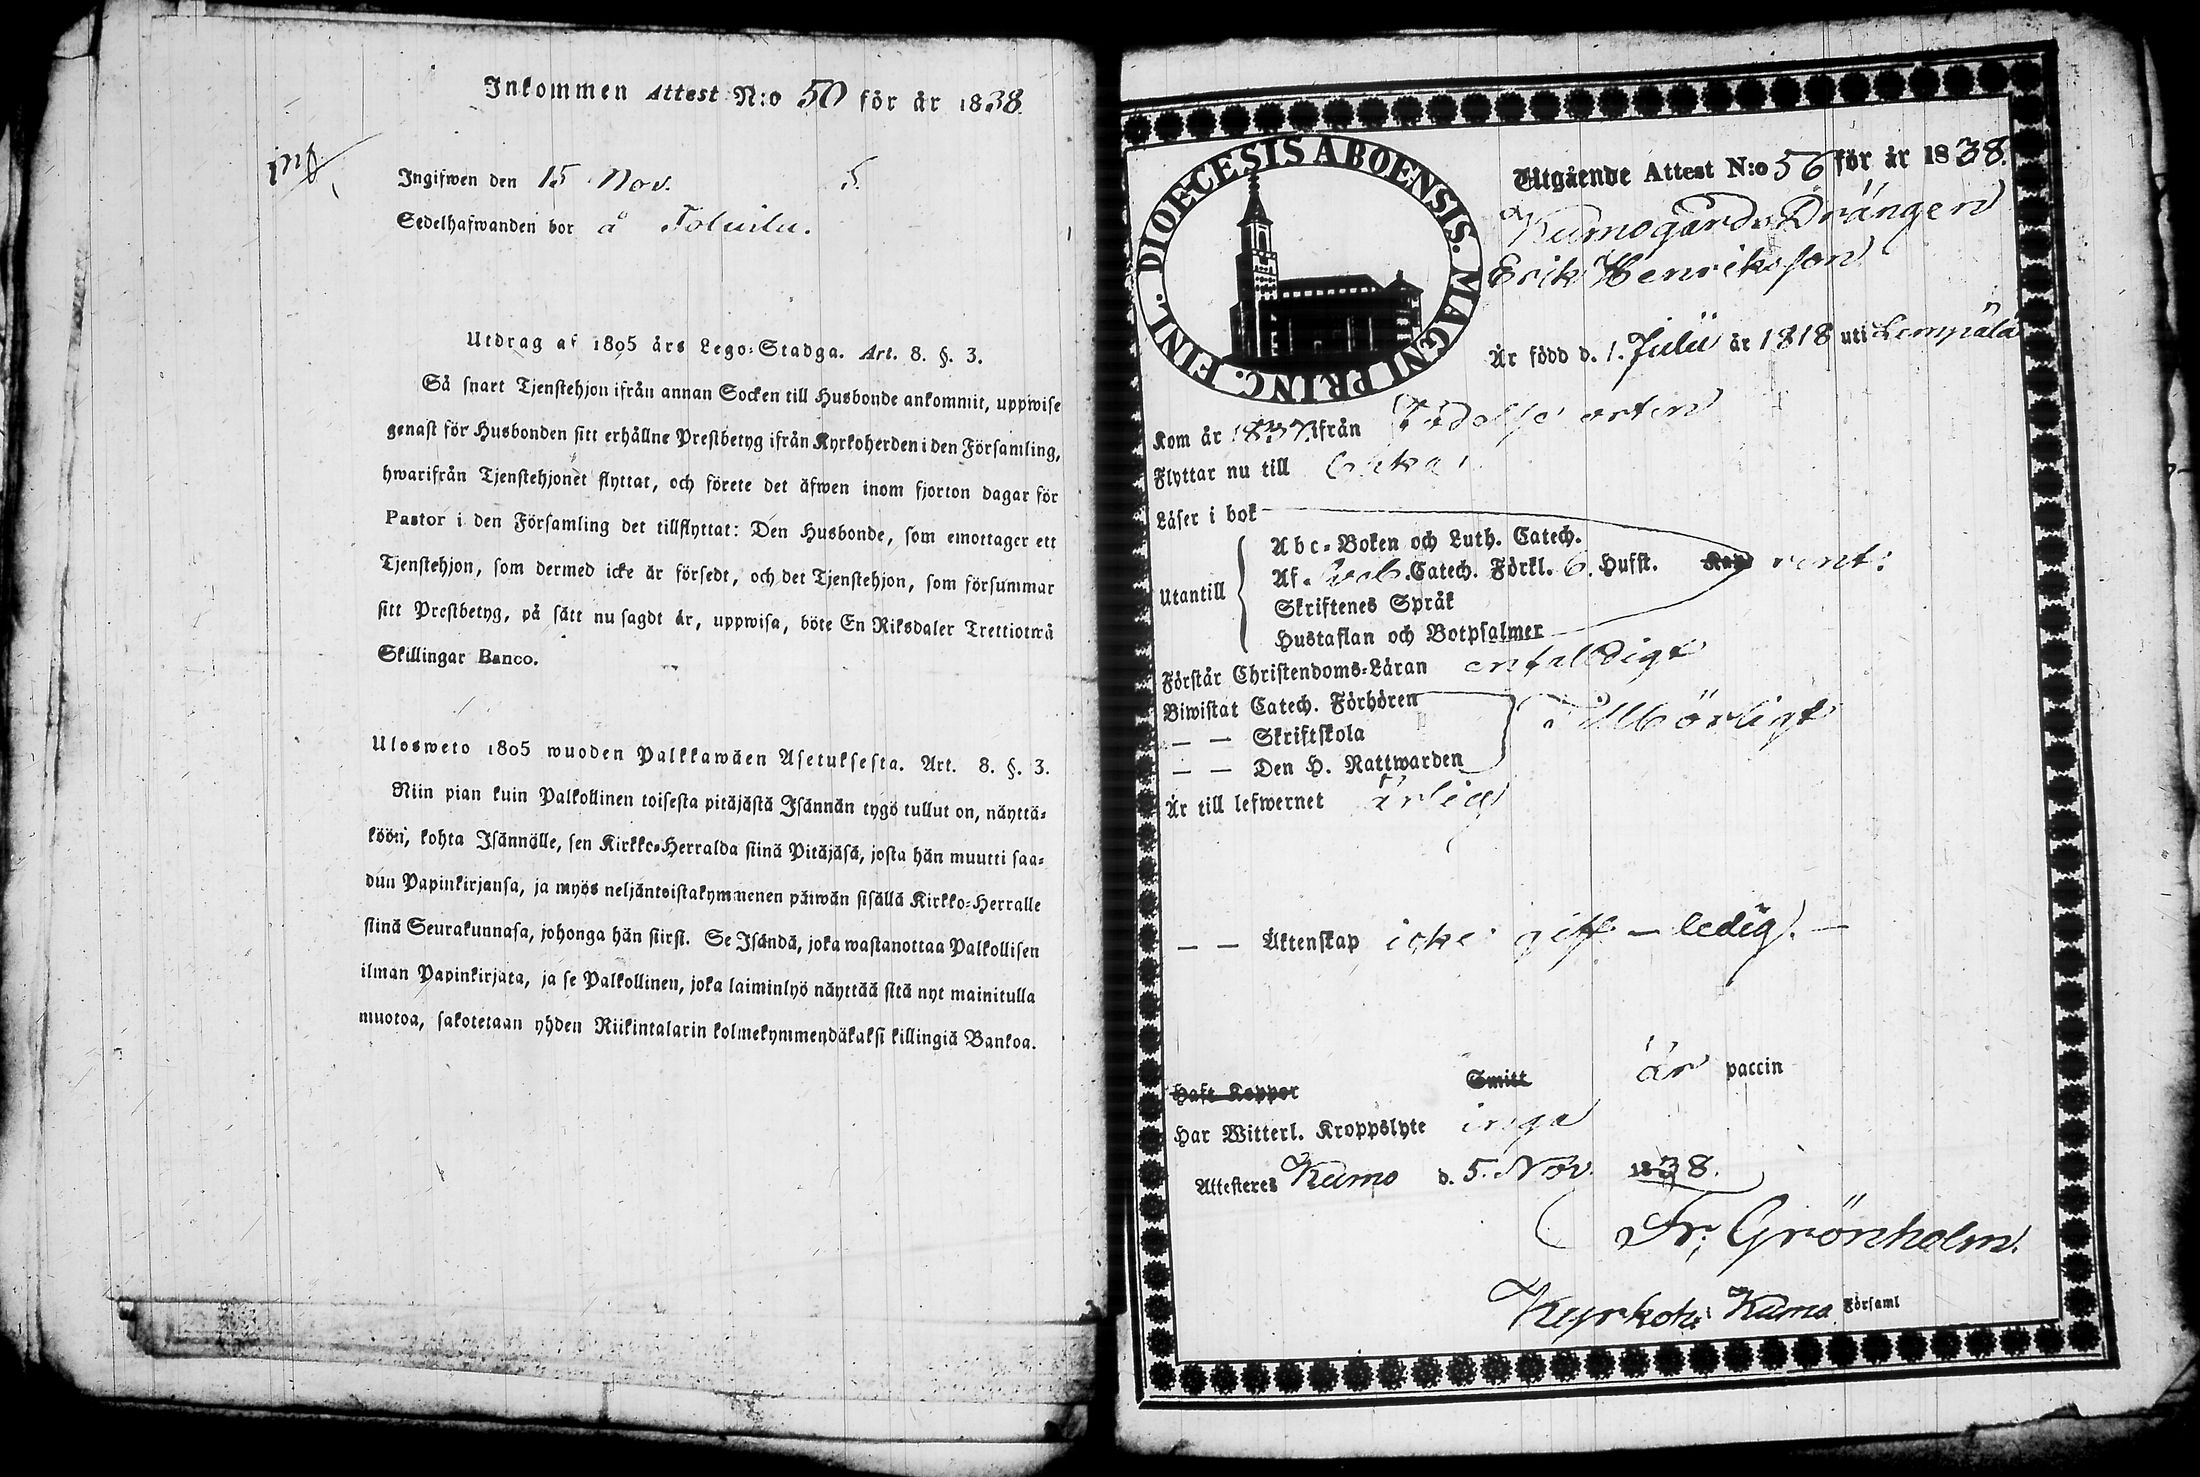 Inkommen Attest N:o 50 för år 1838.
Ingifwen den 15 Nov. 5.
Sedelhafwanden bor å
Utdrag af 1805 års Lego-Stadga. Art. 8. §. 3.
Så snart Tjenstehjon ifrån annan Socken till Husbonde ankommit, uppwise
genast för Husbonden sitt erhållne Prestbetyg ifrån Kyrkoherden i den Församling,
hwarifrån Tjenstehjonet flyttat, och förete det äfwen inom fjorton dagar för
Pastor i den Församling det tillflyttat: Den Husbonde, som emottager ett
Tjenstehjon, som dermed icke är försedt, och det Tjenstehjon, som försummar
sitt Prestbetyg, på sätt nu sagdt är, uppwisa, böte En Riksdaler Trettiotwå
Skillingar Banco.
Ulosweto 1805 wuoden Palkkawäen Asetuksesta. Art. 8. §. 3.
Niin pian kuin Palkollinen toisesta pitäjästä Isännän tygö tullut on, näyttä-
köön, kohta Isännälle, sen Kirkko-Herralda siinä Pitäjäsä, josta hän muutti saa-
dun Papinkirjansa, ja myös neljäntoistakymmenen päiwän sisällä Kirkko-Herralle
siinä Seurakunnasa, johonga hän siirsi. Se Isändä, joka wastanottaa Palkollisen
ilman Papinkirjata, ja se Palkollinen, joka laiminlyö näyttää sitä nyt mainitulla
muotoa, sakotetaan yhden Riikintalarin kolmekymmendäkaksi killingiä Bankoa.
DIOECESIS ABOENSIS. MAGNI PRINC. FINL.
Utgående Attest N:o 56 för år 1838.
Kumogårds Drängen
Erik Henriksson
Är född d. 1. Julii år 1818 uti Lempälä
Kom år 1837 ifrån Födelse orten
Flyttar nu till
Läser i bok
Abc-Boken och Luth. Catech.
Utantill
Af Sveb. Catech. Förkl. 6. Hufst. Kap rent:
Skriftenes Språk
Hustaflan och Botpsalmer
Förstår Christendoms-Läran enfaldigt
Biwistat Catech. Förhören
— — Skriftskola Tillbörligt
— — Den H. Nattwarden
Är till lefwernet ärlig
— — Äktenskap icke gift — ledig. —
Haft Koppor Smitt är vaccin
Har Witterl. Kroppslyte inga
Attesteres Kumo d. 5. Nov. 1838.
Fr: Grönholm.
Kyrkoh: i Kumo Församl